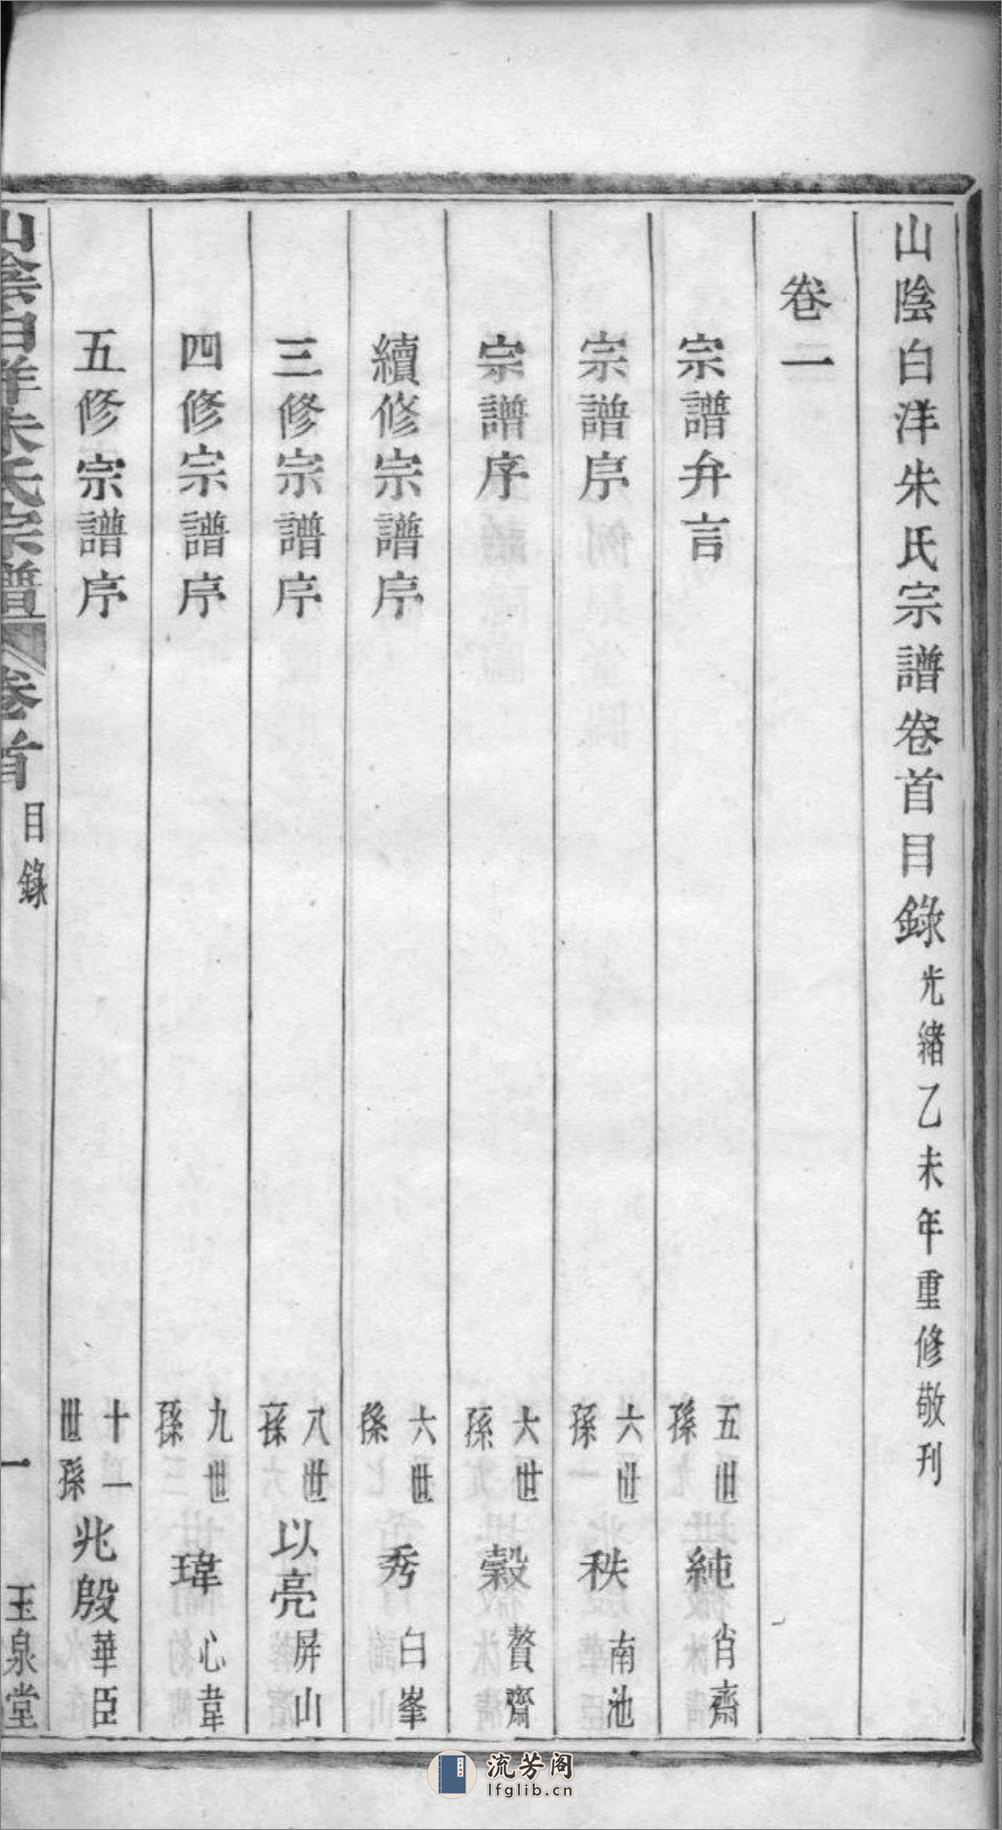 山陰白洋朱氏宗譜卷首目錄 光緒乙未年重修敬刊
卷一
宗譜弁言 五世孫 純 肖齋
宗譜序 六世孫 秩 南池
宗譜序 六世孫 穀 贅齋
續修宗譜序 六世孫 秀 白峯
三修宗譜序 八世孫 以亮 屏山
四修宗譜序 九世孫 瑋 心韋
五修宗譜序 十一世孫 兆殷 華臣
山陰白洋朱氏宗譜 卷首 目錄 一 玉泉堂
流芳阁
lfglib.cn